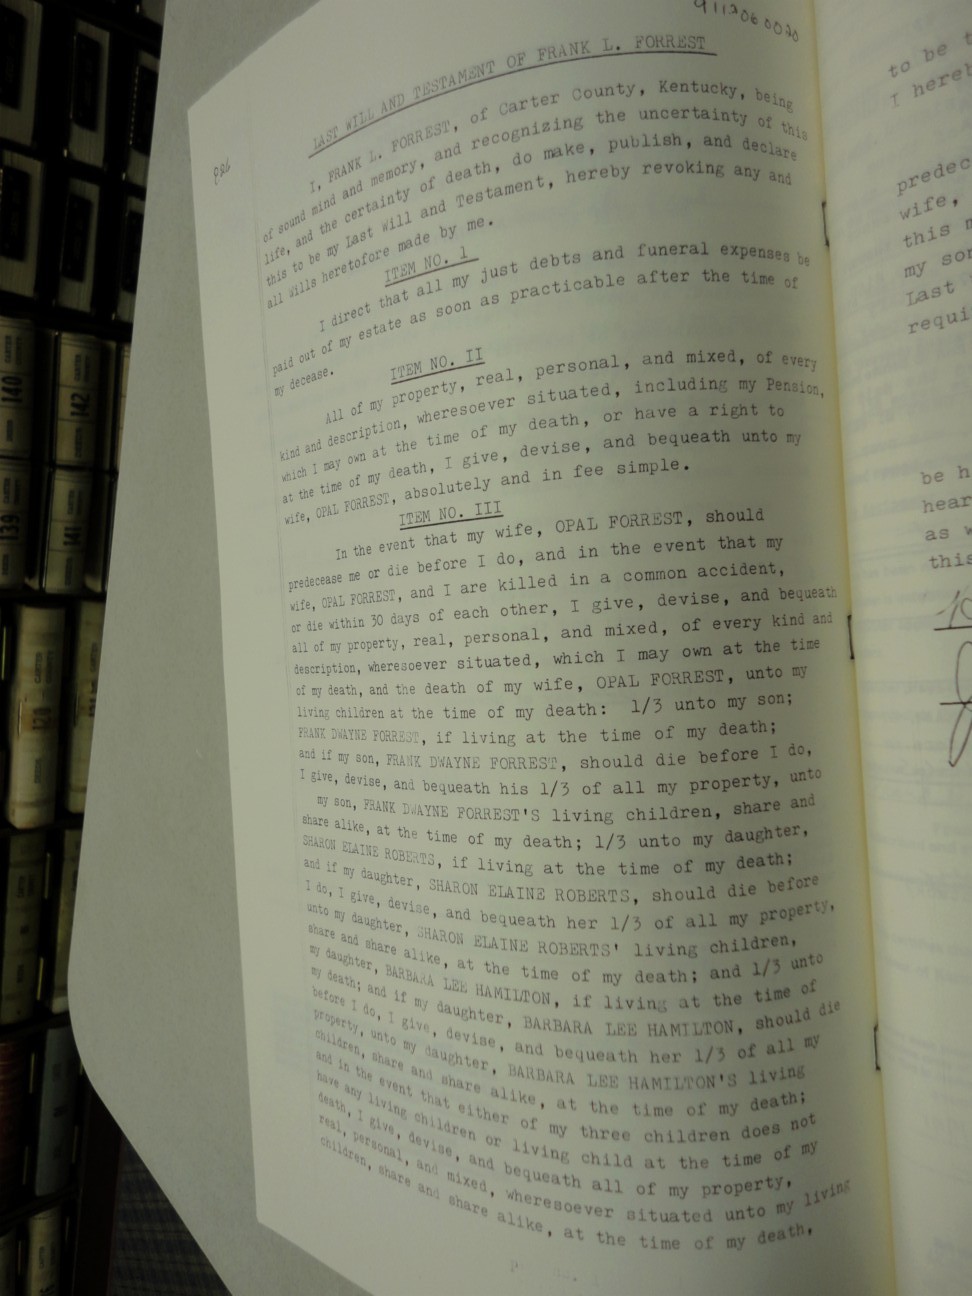 9112060020
LAST WILL AND TESTAMENT OF FRANK L. FORREST
I, FRANK L. FORREST, of Carter County, Kentucky, being
of sound mind and memory, and recognizing the uncertainty of this
life, and the certainty of death, do make, publish, and declare
this to be my Last Will and Testament, hereby revoking any and
all Wills heretofore made by me.
ITEM NO. 1
I direct that all my just debts and funeral expenses be
paid out of my estate as soon as practicable after the time of
my decease.
ITEM NO. II
All of my property, real, personal, and mixed, of every
kind and description, wheresoever situated, including my Pension,
which I may own at the time of my death, or have a right to
at the time of my death, I give, devise, and bequeath unto my
wife, OPAL FORREST, absolutely and in fee simple.
ITEM NO. III
In the event that my wife, OPAL FORREST, should
predecease me or die before I do, and in the event that my
wife, OPAL FORREST, and I are killed in a common accident,
or die within 30 days of each other, I give, devise, and bequeath
all of my property, real, personal, and mixed, of every kind and
description, wheresoever situated, which I may own at the time
of my death, and the death of my wife, OPAL FORREST, unto my
living children at the time of my death: 1/3 unto my son;
FRANK DWAYNE FORREST, if living at the time of my death;
and if my son, FRANK DWAYNE FORREST, should die before I do,
I give, devise, and bequeath his 1/3 of all my property, unto
my son, FRANK DWAYNE FORREST'S living children, share and
share alike, at the time of my death; 1/3 unto my daughter,
SHARON ELAINE ROBERTS, if living at the time of my death;
and if my daughter, SHARON ELAINE ROBERTS, should die before
I do, I give, devise, and bequeath her 1/3 of all my property,
unto my daughter, SHARON ELAINE ROBERTS' living children,
share and share alike, at the time of my death; and 1/3 unto
my daughter, BARBARA LEE HAMILTON, if living at the time of
my death; and if my daughter, BARBARA LEE HAMILTON, should die
before I do, I give, devise, and bequeath her 1/3 of all my
property, unto my daughter, BARBARA LEE HAMILTON'S living
children, share and share alike, at the time of my death;
and in the event that either of my three children does not
have any living children or living child at the time of my
death, I give, devise, and bequeath all of my property,
real, personal, and mixed, wheresoever situated unto my living
children, share and share alike, at the time of my death.
to be
I
wife,
this
my
Last
be
as
this
140
142
139
141